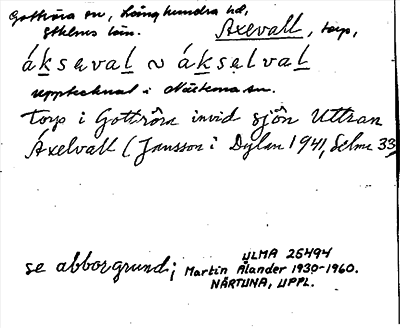 Gottröra sn, Långhundra hd,
Sthlms län. Axevall, torp,
áksəval ~ áksəlval
upptecknat i Närtuna sn.
Torp i Gottröra invid sjön Uttran
Axelvall (Jansson i Dylan 1941, Selma 33,
se abborgrund;
ULMA 25494
Martin Ålander 1930-1960.
NÄRTUNA, UPPL.